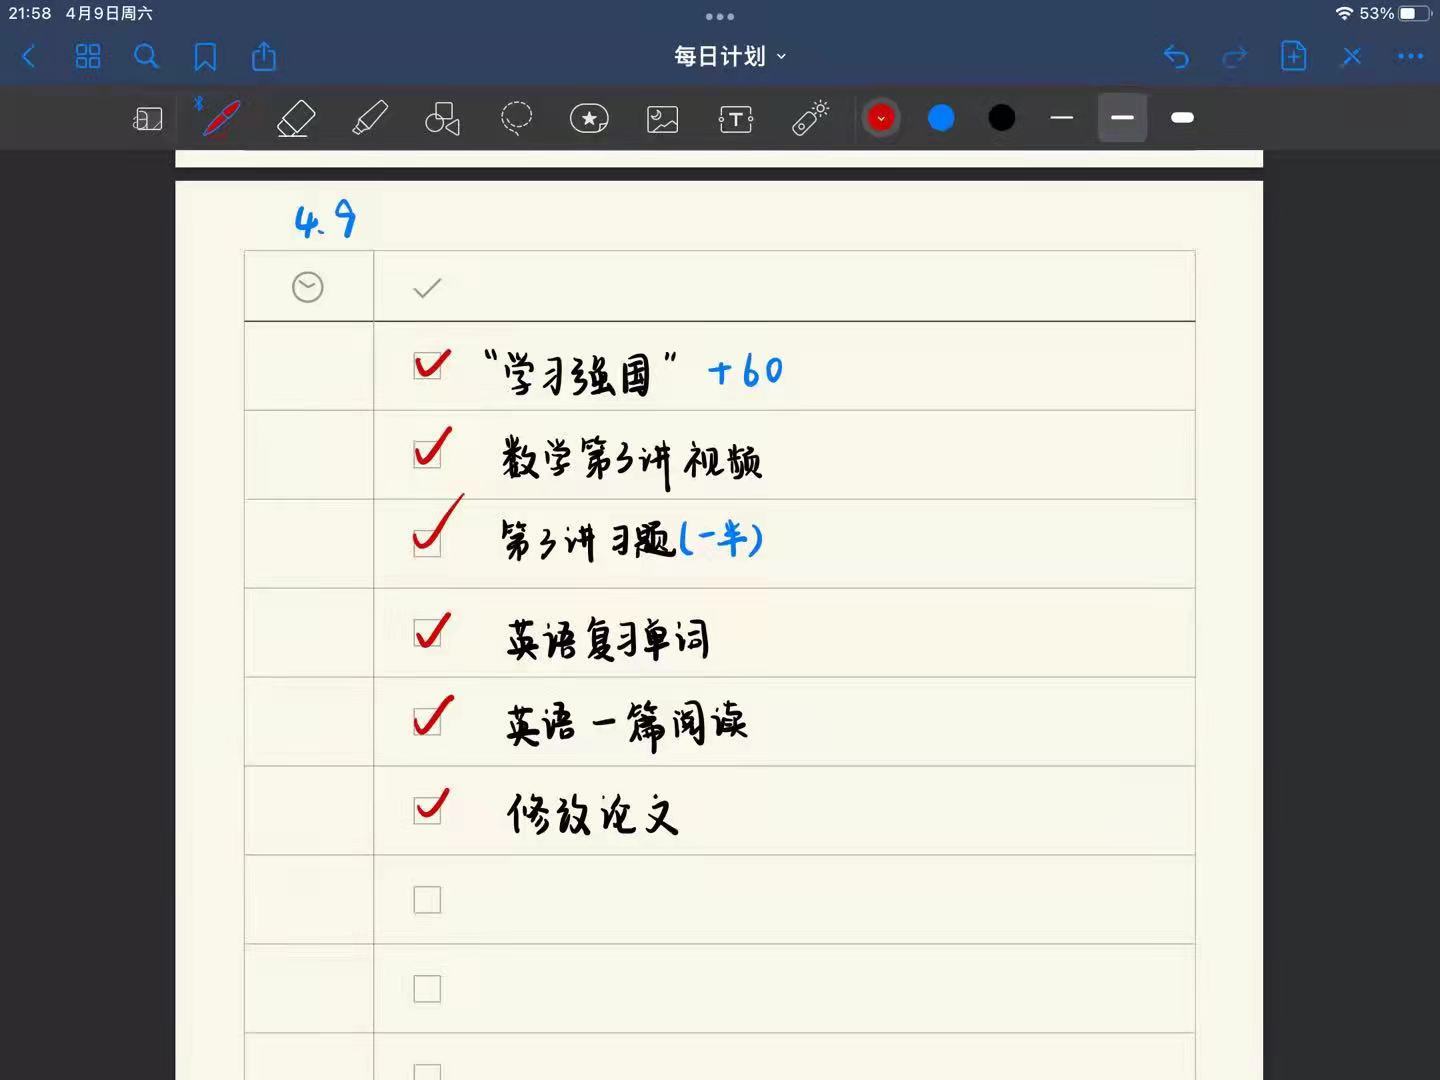 21:58 4月9日周六
53%
每日计划
4.9
“学习强国” +60
数学第3讲视频
第3讲习题(一半)
英语复习单词
英语一篇阅读
修改论文